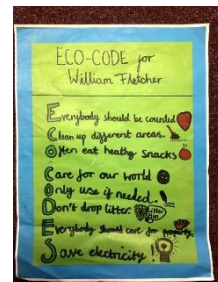 ECO-CODE for
William Fletcher
Everybody should be counted
Clean up different areas.
Often eat healthy snacks
Care for our world
Only use if needed.
Don't drop litter
Everybody should care for property.
Save electricity